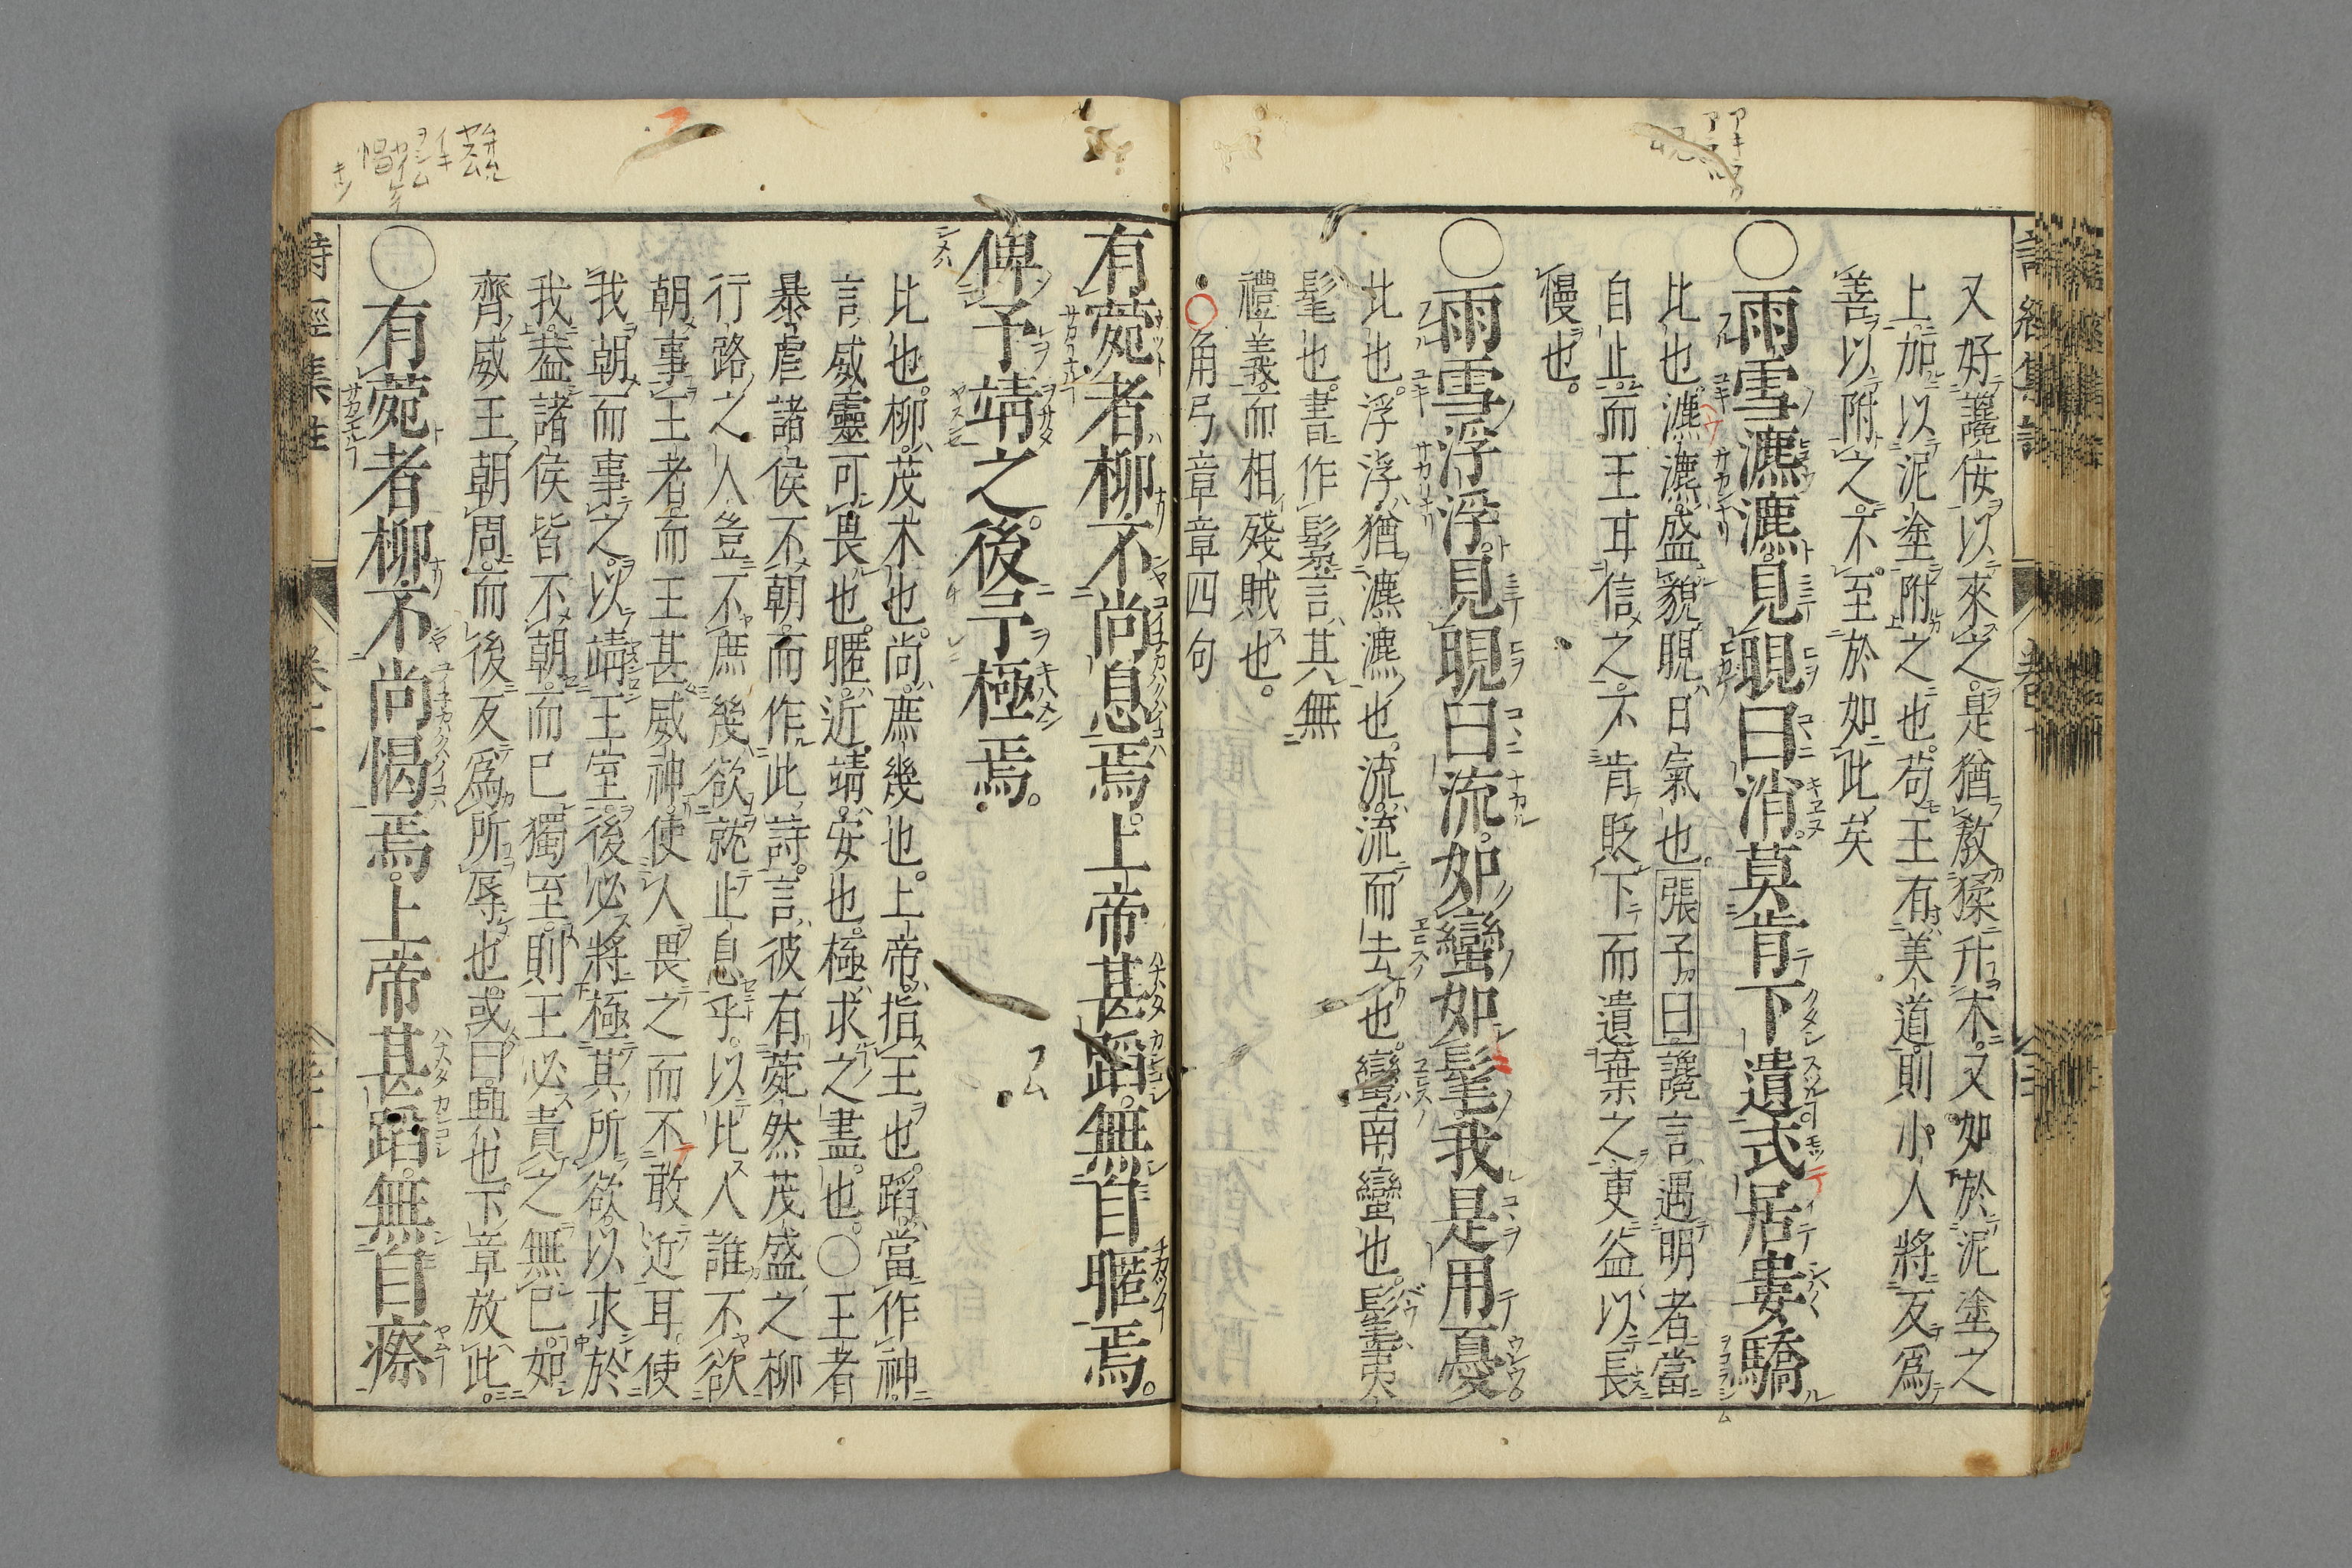 又好讒侫以來之是猶教猱升木又如於泥塗之
上加以泥塗附之也苟王有美道則小人將反爲
善以附之不至於如此矣
○雨雪瀌瀌見晛曰消莫肯下遺式居婁驕
比也瀌瀌盛貌晛日氣也張子曰讒言遇明者當
自止而王耳信之不肯貶下而遺棄之更益以長
慢也
○雨雪浮浮見晛曰流如蠻如髦我是用憂
比也浮浮猶瀌瀌也流流而去也蠻南蠻也髦夷
髦也書作髳言其無
禮義而相殘賊也
角弓章章四句
有菀者柳不尚息焉上帝甚蹈無自暱焉
俾予靖之後予極焉
比也柳茂木也尚庶幾也上帝指王也蹈當作神
言威靈可畏也暱近靖安也極求之盡也○王者
暴虐諸侯不朝而作此詩言彼有菀然茂盛之柳
行路之人豈不庶幾欲就止息乎以比人誰不欲
朝事王者而王甚威神使人畏之而不敢近耳使
我朝而事之以靖王室後必將極其所欲以求於
我葢諸侯皆不朝而已獨至則王必責之無已如
齊威王朝周而後反爲所辱也或曰興也下章放此
○有菀者柳不尚愒焉上帝甚蹈無自瘵